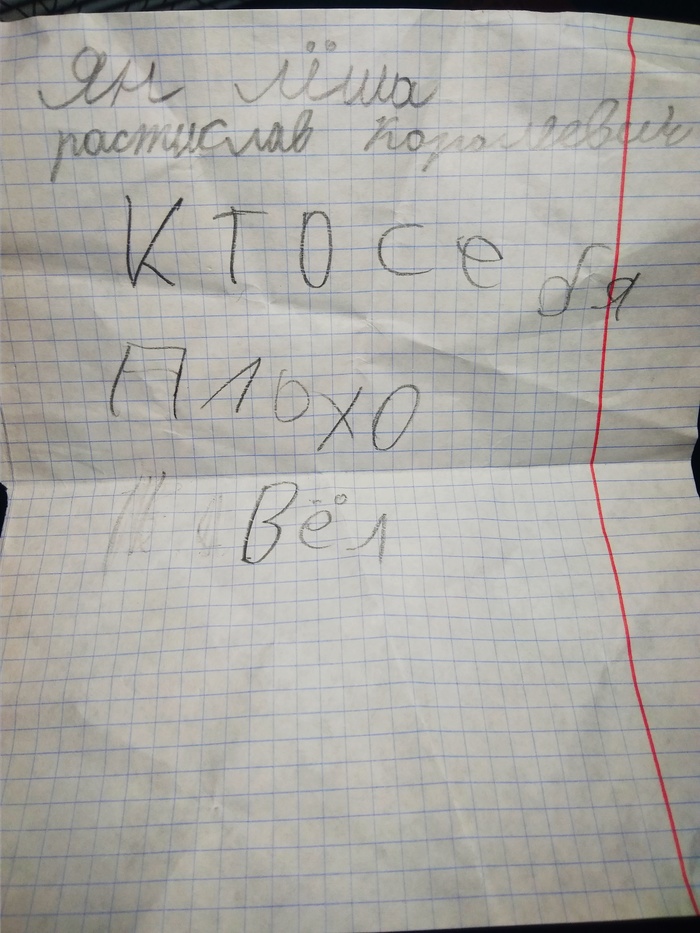 Ян лёша
растислав Королевич
КТО себя
плохо
Вёл